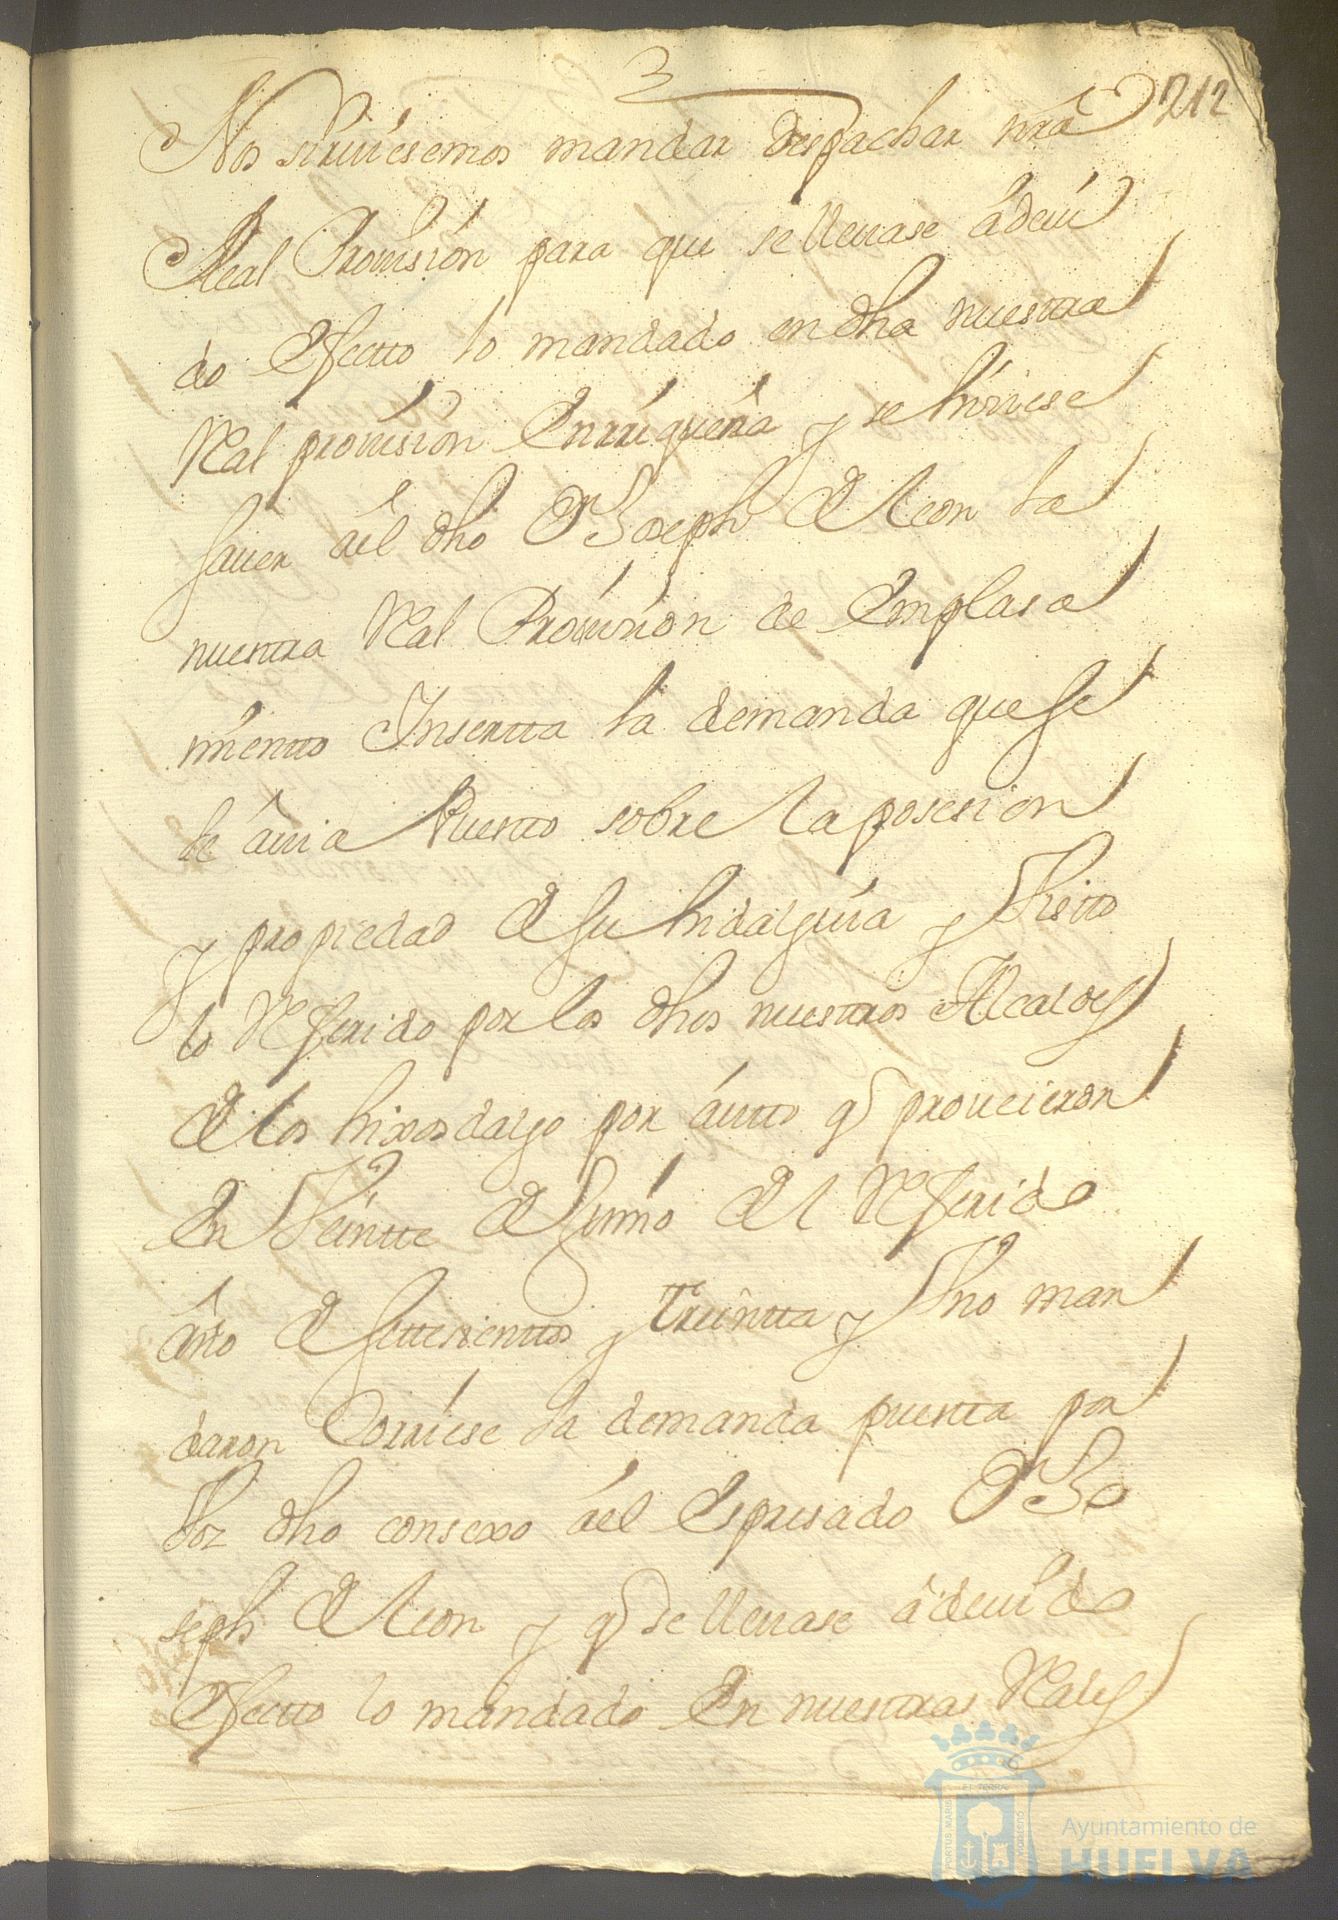 3
212
Nos sirviesemos mandar despachar nrâ
Real Provision para que se llevase â devi
do Efectto lo mandado en dha nuestra
Real provision Enrriqueña y se hiciese
saver âel dho Dn Joseph de Leon la
nuestra Real Provision de Emplasa
mientto Insertta la demanda que se
le âvia Puestto sobre la posesion
y propiedad de su hidalguia y Visto
lo Referido por los dhos nuestros Alcaldes
de los hixosdalgo por âutto q proveieron
En Veintte de Junio del Referido
âño de settesienttos y treintta y Uno man
daron Corriese la demanda puesta por
Voz dho consexo âel Espresado Dn Jo
seph de Leon y q se llevase â devido
Efectto lo mandado En nuestras Reales
PORTUS MARIS
ET TERRAE
CUSTODIA
Ayuntamiento de
HUELVA